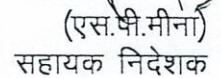 (एस.पी.मीना)
सहायक निदेशक